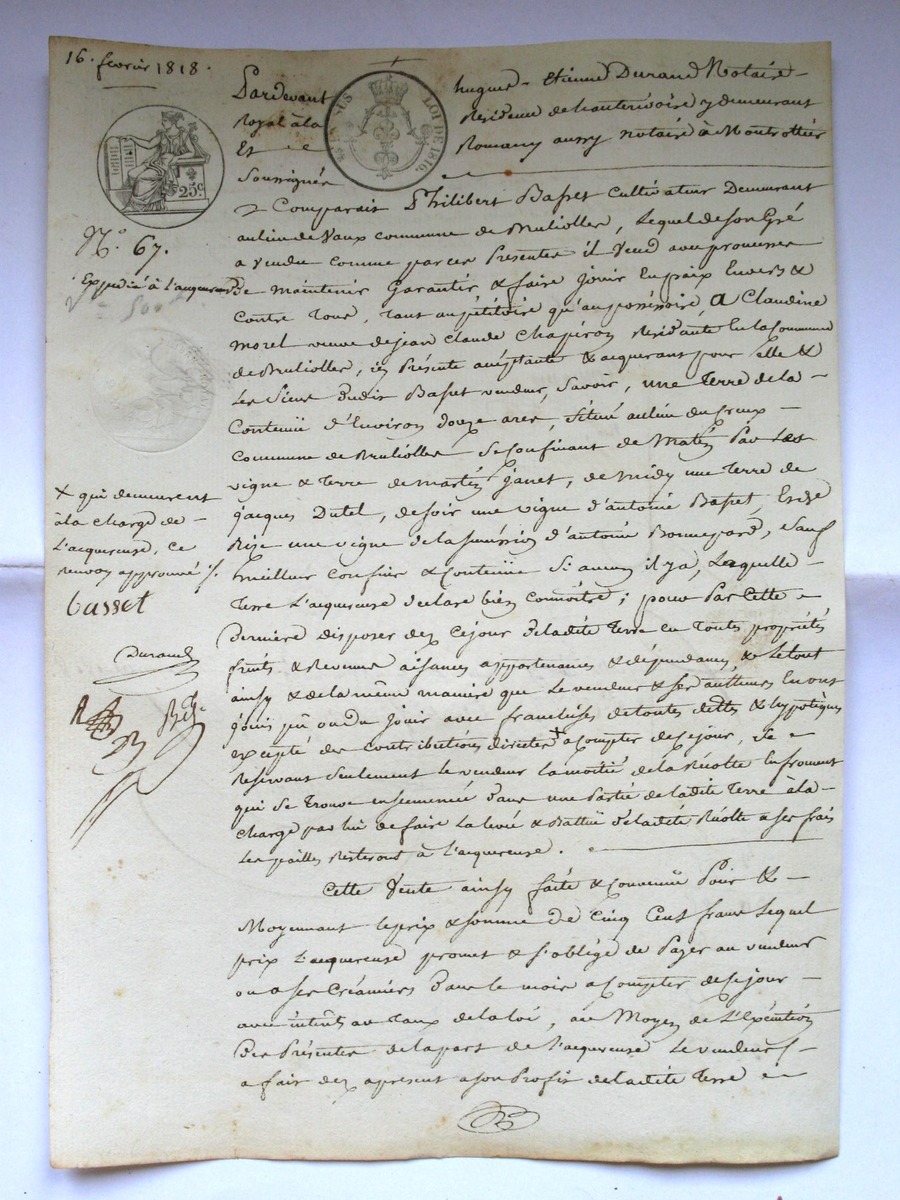 16. fevrier 1818.
Pardevant hugues - etienne Durand Notaire -
Royal à la Residence de hauterivoire y demeurant
Et Romany aussy notaire à Montrottier
Soussignés
EN SUS LOI DE 1816.
25c.
N.° 67.
Expedié à l'acquereuse
Comparait Philibert Basset cultivateur Demeurant
au lieu de Vaux commune de Brulliolles, Lequel de son Gré
a vendu comme par ces Presentes il Vend avec promesse
De maintenir Garantir & faire Jouir En paix Envers &
Contre Tous, Tant au pétitoire qu'au possessoire, A Claudine
Morel veuve de jean Claude Chapiron Residante En la Commune
de Brulliolles, ici Présente acceptante & acquerant pour Elle &
Les Siens dudit Basset vendeur, Savoir, une Terre de la -
Contenüe d'Environ douze ares, Situé au lieu du Creux -
Commune de Brulliolles Se Confinant de Matin Par Les
vigne & Terre de Martin Janet, de midy une Terre de
Jacques Dutel, de soir une vigne d'antoine Basset, Et de
Bize une vigne de la Succession d'antoine Bonnepard, Sauf
meilleur confins & Contenüe Si aucun il y a, Laquelle -
Terre L'acquereuse declare bien Connoitre; pour Par Cette -
Derniere disposer dez Ce jour de ladite Terre en Toutes propriétés
fruits & Revenus aisances appartenances & dépendances, & Le tout
ainsy & de la même maniere que Le vendeur & Ses autheurs En ont
joui pû ou du Jouir avec franchises de toutes dettes & hypotèques
excepté des Contributions directes + a Compter de Ce jour, Se -
Reservant Seulement le vendeur la moitié de la Recolte En froment
qui Se Trouve ensemencée Dans une Partie de ladite Terre à la -
Charge par lui de faire La levée & Battüe de ladite Récolte a Ses frais
Les pailles Resteront à L'acquereuse.
x qui demeurent
à la charge de -
L'acquereuse, Ce
renvoy approuvé ./.
basset
Durand
Cette Vente ainsy faite & Convenüe Pour & -
Moyennant le prix & Somme De Cinq Cent francs Lequel
prix L'acquereuse promet & S'oblige de Payer au vendeur
ou a Ses Créanciers Dans le mois a Compter de Ce jour -
avec intérêts au Taux de la loi, au Moyen de L'Exécution
Des Présentes de la part de L'acquereuse Le vendeur S -
a fait dez apresent a Son Profit de ladite Terre